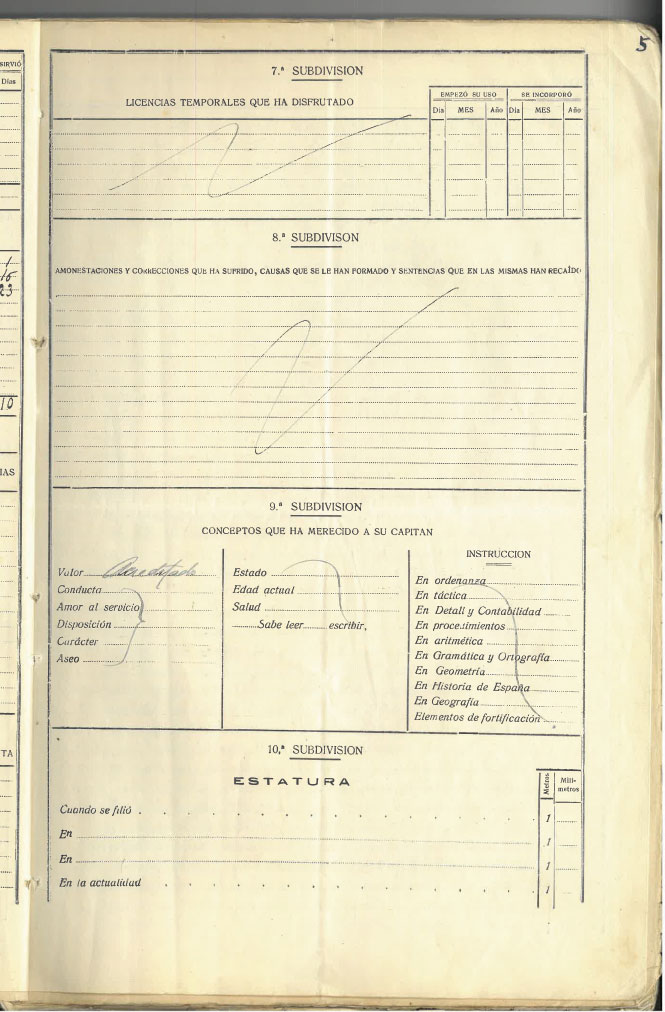 5
SIRVIÓ
Días
1
15
23
10
IAS
TA
7.ª SUBDIVISION
LICENCIAS TEMPORALES QUE HA DISFRUTADO
EMPEZÓ SU USO
SE INCORPORÓ
Día MES Año Día MES Año
8.ª SUBDIVISON
AMONESTACIONES Y CORRECCIONES QUE HA SUFRIDO, CAUSAS QUE SE LE HAN FORMADO Y SENTENCIAS QUE EN LAS MISMAS HAN RECAÍDO
9.ª SUBDIVISION
CONCEPTOS QUE HA MERECIDO A SU CAPITAN
Valor Acreditado
Conducta
Amor al servicio
Disposición
Carácter
Aseo
Estado
Edad actual
Salud
Sabe leer escribir,
INSTRUCCION
En ordenanza
En táctica
En Detall y Contabilidad
En procedimientos
En aritmética
En Gramática y Ortografía
En Geometría
En Historia de España
En Geografía
Elementos de fortificación
10.ª SUBDIVISION
ESTATURA
Metros
Milí-
metros
Cuando se filió 1
En 1
En 1
En la actualidad 1